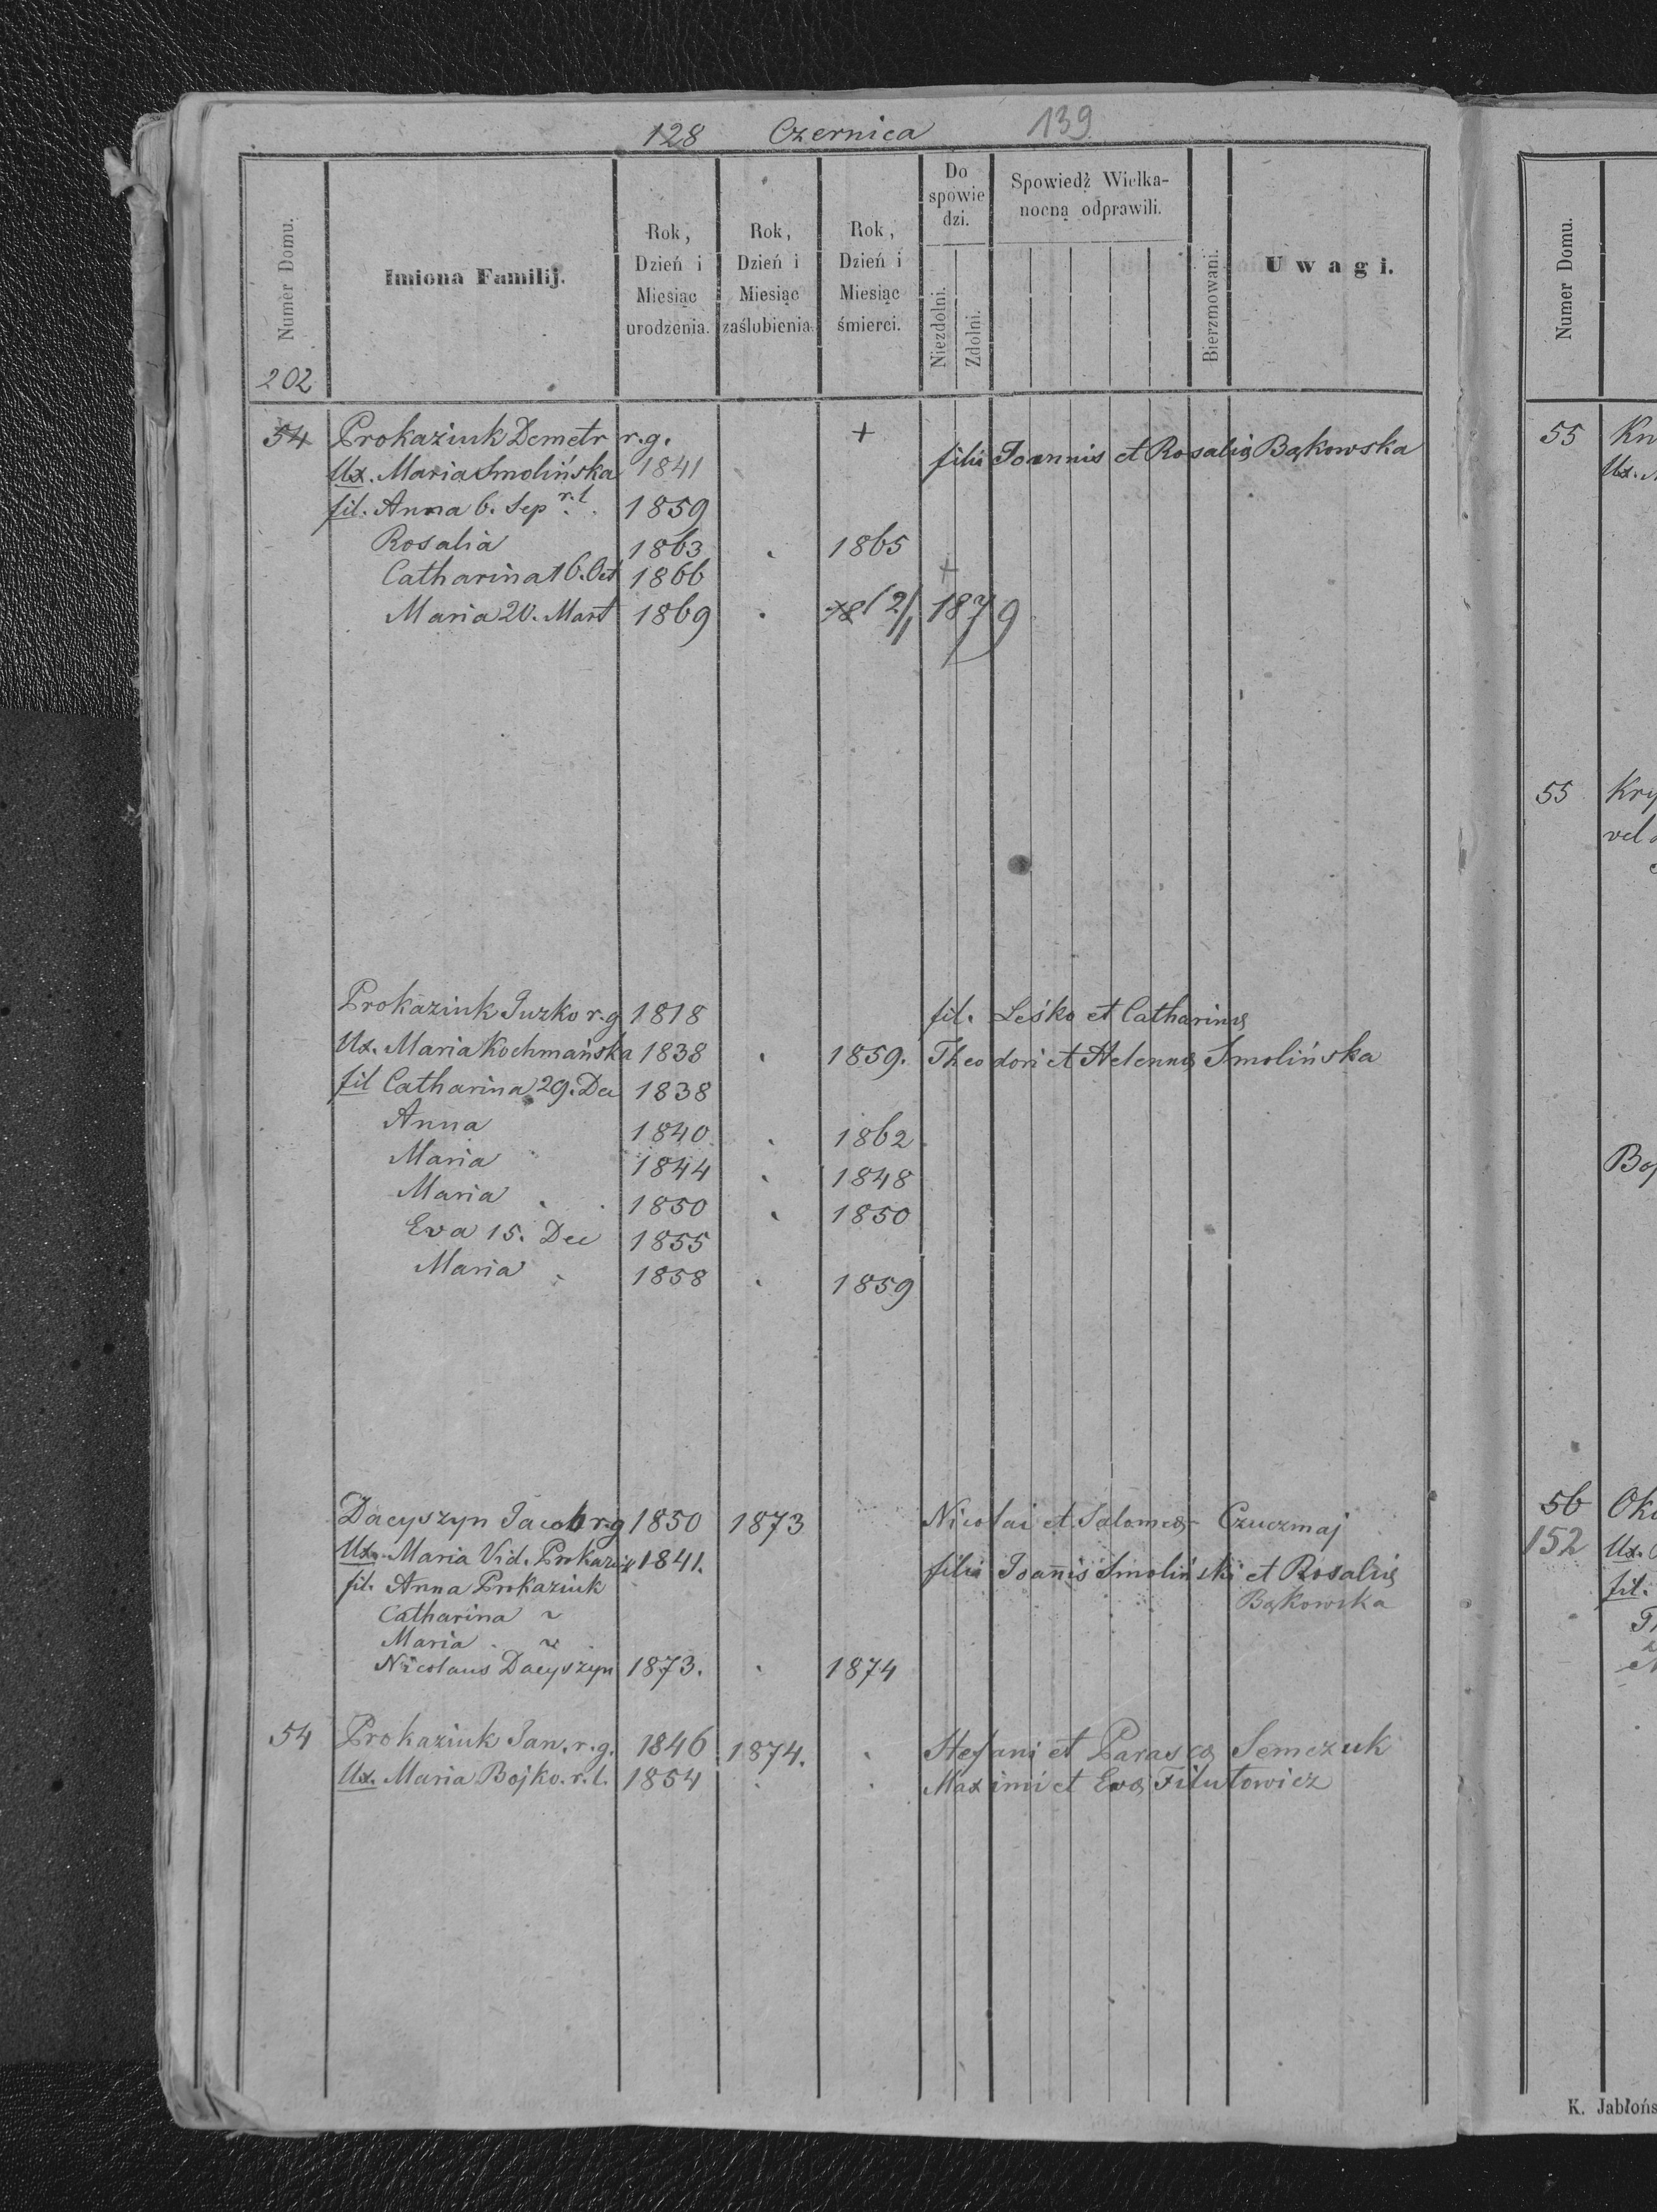 128 Czernica 139
Numer Domu.
Imiona Familij.
Rok, Dzień i Miesiąc urodzenia.
Rok, Dzień i Miesiąc zaślubienia.
Rok, Dzień i Miesiąc śmierci.
Do spowie dzi.
Niezdolni.
Zdolni.
Spowiedź Wielka- nocną odprawili.
Bierzmowani.
Uwagi.
202
54 Prokaziuk Demetr r.g. +
Ux. Maria Smolińska 1841 filia Joannis et Rosaliæ Bąkowska
fil. Anna 6. Sep r.l. 1859
Rosalia 1863 1865
Catharina 16. Oct 1866 +
Maria 20. Mart 1869 12/1 1879
Prokaziuk Jurko r.g 1818 fil. Leśko et Catharinæ
Ux. Maria Kochmańska 1838 1859. Theodori et Helennæ Smolińska
fil Catharina 29. Dec 1838
Anna 1840 1862
Maria 1844 1848
Maria 1850 1850
Eva 15. Dec 1855
Maria 1858 1859
Dacyszyn Jacob r.g 1850 1873 Nicolai et Salomeæ Czuczmaj
Ux. Maria Vid. Prokaziuk 1841. filia Joañis Smoliński et Rosaliæ
Bąkowska
fil. Anna Prokaziuk
Catharina ~
Maria ~
Nicolaus Dacyszyn 1873. 1874
54 Prokaziuk Jan. r.g. 1846 1874. Stefani et Parascæ Semczuk
Ux. Maria Bojko. r.l. 1854 Maximi et Evæ Filutowicz
Numer Domu.
55 Kn
Ux.
55 Kry
vel
Boj
56
152 Ux.
fil.
K. Jabłońs